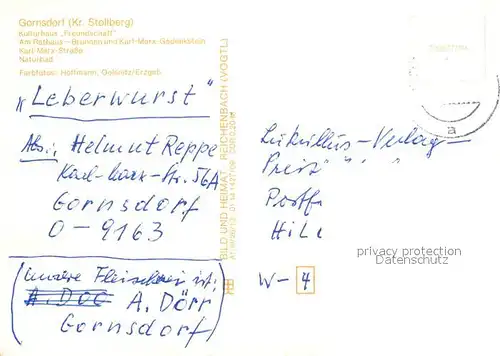 Gornsdorf (Kr. Stollberg)
Kulturhaus „Freundschaft"
Am Rathaus - Brunnen und Karl-Marx-Gedenkstein
Karl-Marx-Straße
Naturbad
Farbfotos: Hoffmann, Oelsnitz/Erzgeb.
„Leberwurst"
Abs.: Helmut Reppe
Karl-Marx-Str. 56A
Gornsdorf
O-9163
(Unsere Fleischerei ist:
A. Dörr
Gornsdorf)
BILD UND HEIMAT REICHENBACH (VOGTL)
Lukullus-Verlag-
Preis
Postf
Hil
W-4
privacy protection
Datenschutz
a